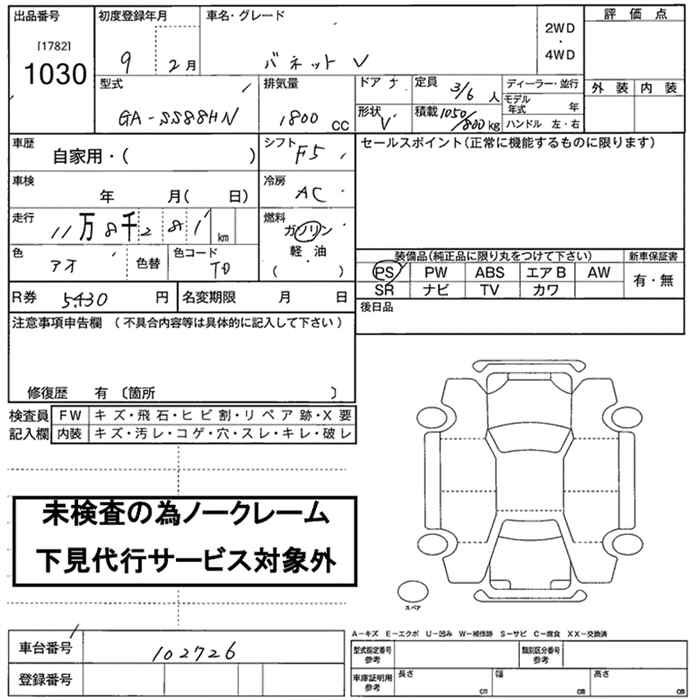 出品番号 初度登録年月 車名・グレード 評価点
[1782] 9 2月 バネット V 2WD
・
1030 4WD
型式 排気量 ドア 定員 3/6 人 ディーラー・並行 外装 内装
GA-SS88HN 1800 CC 形状 V 積載 1050/800kg モデル年式 年
ハンドル 左・右
車歴 自家用・( ) シフト F5 セールスポイント(正常に機能するものに限ります)
車検 年 月( 日) 冷房 AC
走行 11万8千281km 燃料 ガソリン
軽・油
( )
色 アオ 色替 色コード TD 装備品(純正品に限り丸をつけて下さい) 新車保証書
PS PW ABS エアB AW 有・無
R券 5430 円 名変期限 月 日 SR ナビ TV カワ
後日品
注意事項申告欄 (不具合内容等は具体的に記入して下さい)
修復歴 有 〔箇所 〕
検査員 FW キズ・飛石・ヒビ割・リペア跡・X要
記入欄 内装 キズ・汚レ・コゲ・穴・スレ・キレ・破レ
未検査の為ノークレーム
下見代行サービス対象外
スペア
A-キズ E-エクボ U-凹み W-補修跡 S-サビ C-腐食 XX-交換済
車台番号 102726 型式指定番号 類別区分番号
参考 参考
登録番号 車庫証明用 長さ cm 幅 cm 高さ cm
参考